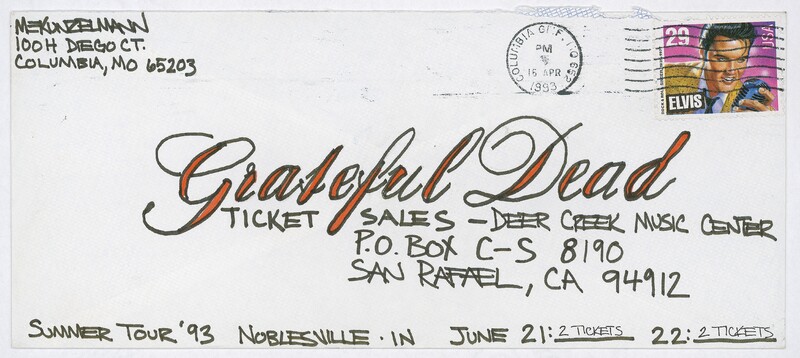 MEKUNZELMANN
100H DIEGO CT.
COLUMBIA, MO 65203
COLUMBIA GMF. MO 652
PM
16 APR
1993
29
USA
ELVIS
Grateful Dead
TICKET SALES – DEER CREEK MUSIC CENTER
P.O. BOX C-S 8190
SAN RAFAEL, CA 94912
SUMMER TOUR '93 NOBLESVILLE · IN JUNE 21: 2 TICKETS 22: 2 TICKETS